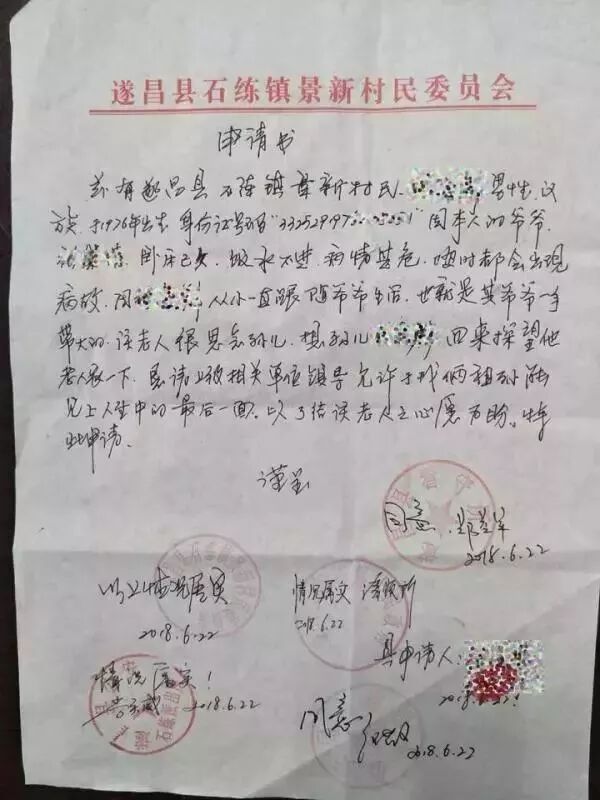 遂昌县石练镇景新村民委员会
申请书
兹有遂昌县石练镇景新村民 男性,汉
族,于1976年出生,身份证号码"332529197 051"因本人的爷爷,
卧床已久,滴水不进,病情甚危,随时都会出现
病故,因 从小一直跟随爷爷生活,也就是其爷爷一手
带大的,该老人很思念孙儿,想孙儿 回来探望他
老人家一下,恳请上级相关单位领导允许于我俩祖孙能
见上人生中的最后一面。以了结该老人之心愿为盼。特
此申请。
谨呈
同意
2018.6.22
以上情况属实
2018.6.22
情况属实 请领所
2018.6.22
具申请人:
2018.6.22
情况属实!
2018.6.22
同意
2018.6.22